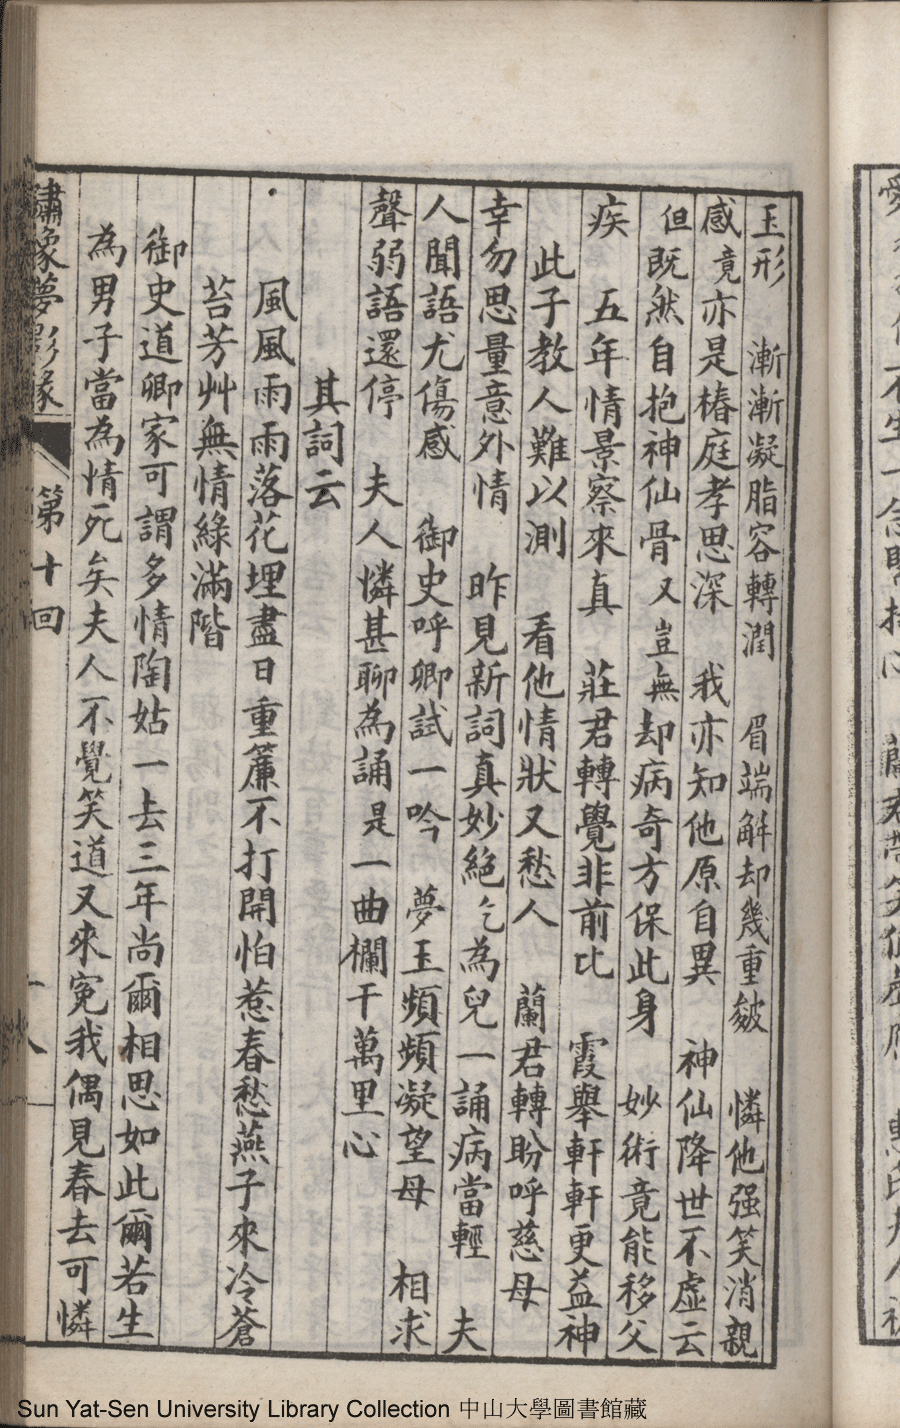 玉形　漸漸凝脂容轉潤　眉端解却幾重皴　憐他强笑消親
感竟亦是椿庭孝思深　我亦知他原自異　神仙降世不虛云
但既然自抱神仙骨又豈無却病奇方保此身　妙術竟能移父
疾　五年情景察來真　莊君轉覺非前比　霞舉軒軒更益神
此子教人難以測　看他情狀又愁人　蘭君轉盼呼慈母
幸勿思量意外情　昨見新詞真妙絕乞為兒一誦病當輕　夫
人聞語尤傷感　御史呼卿試一吟　夢玉頻頻凝望母　相求
聲弱語還停　夫人憐甚聊為誦是一曲欄干萬里心
其詞云
風風雨雨落花埋盡日重簾不打開怕惹春愁燕子來冷蒼
苔芳艸無情綠滿階
御史道卿家可謂多情陶姑一去三年尚爾相思如此爾若生
為男子當為情死矣夫人不覺笑道又來寃我偶見春去可憐
繡像夢影緣
第十回
十八
Sun Yat-Sen University Library Collection 中山大學圖書館藏